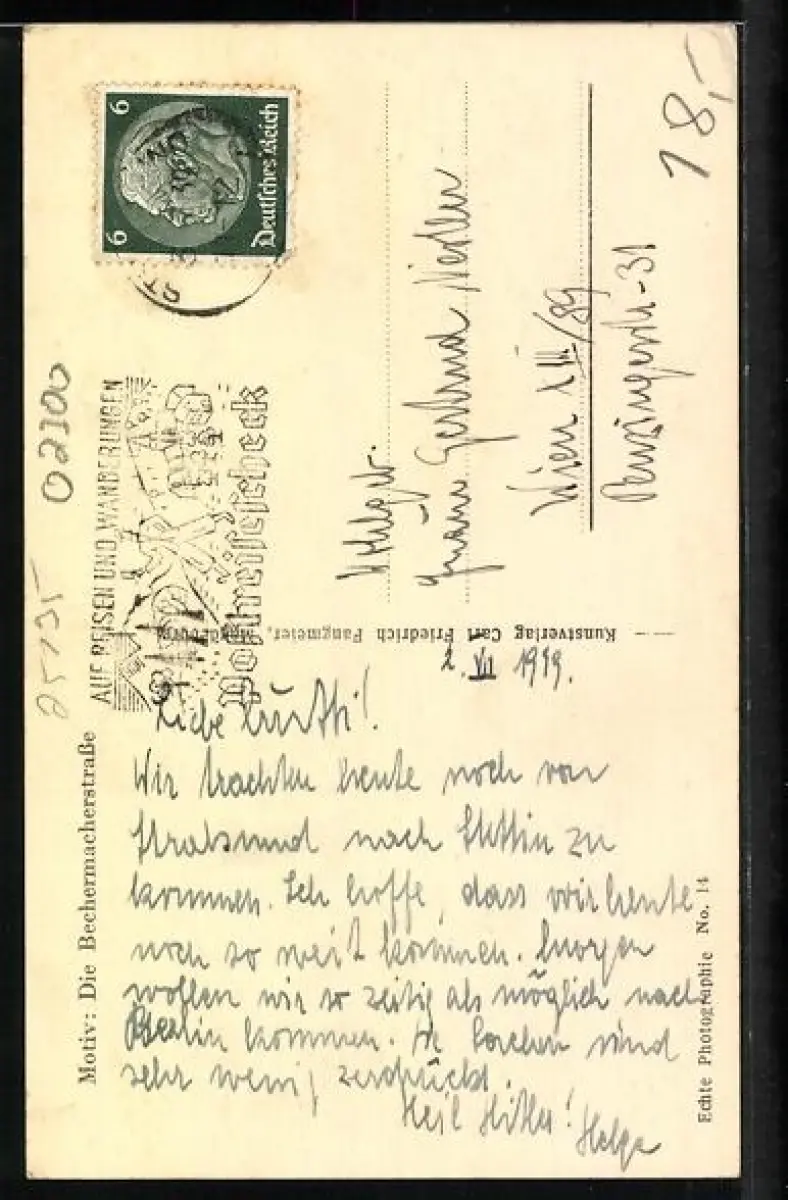 18,-
02100
25135
6 6
Deutsches Reich
AUF REISEN UND WANDERUNGEN
Postreisescheck
Motiv: Die Bechermacherstraße
Kunstverlag Carl Friedrich Fangmeier, Magdeburg
Echte Photographie No. 14
Wien XIII/89
Penzingerstr. 31
2. VII 1939.
Liebe Mutti!
Wir trachten heute noch von
Stralsund nach Stettin zu
kommen. Ich hoffe, dass wir heute
noch so weit kommen. Morgen
wollen wir so zeitig als möglich nach
Berlin kommen. sind
sehr wenig zerdrückt.
Heil Hitler!
Helga